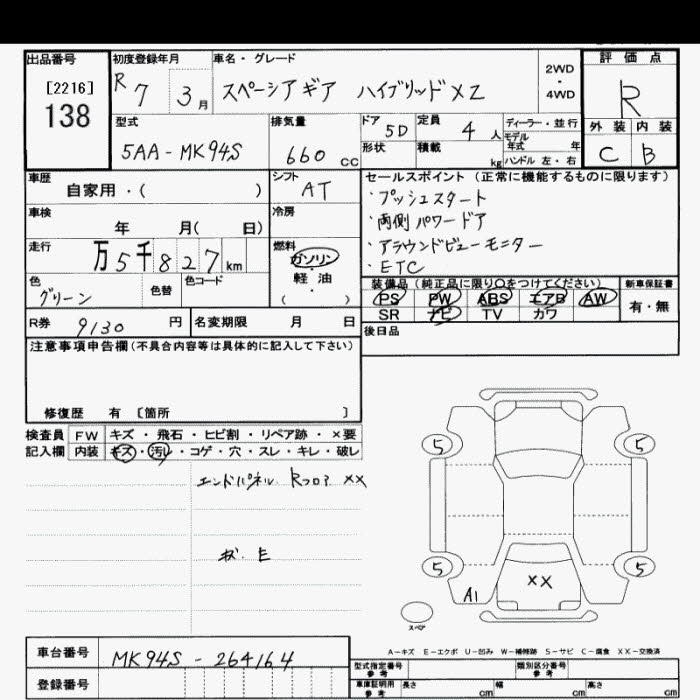 出品番号
[2216]
138
初度登録年月
R7 3月
車名・グレード
スペーシア ギア ハイブリッド XZ
2WD
・
4WD
評価点
R
外装 内装
C B
型式
5AA-MK94S
排気量
660 cc
ドア
5D
定員
4 人
形状
積載
kg
ディーラー・並行
モデル
年式 年
ハンドル 左・右
車歴
自家用・( )
シフト
AT
車検
年 月( 日)
冷房
走行
万5千827km
燃料
ガソリン
軽油
( )
色
グリーン
色替
色コード
R券 9130 円
名変期限 月 日
セールスポイント (正常に機能するものに限ります)
・プッシュスタート
・両側パワードア
・アラウンドビューモニター
・ETC
装備品 (純正品に限り○をつけてください)
PS PW ABS エアB AW
SR ナビ TV カワ
新車保証書
有・無
後日品
注意事項申告欄(不具合内容等は具体的に記入して下さい)
修復歴 有 [箇所 ]
検査員
記入欄
FW キズ・飛石・ヒビ割・リペア跡・×要
内装 キズ・汚れ・コゲ・穴・スレ・キレ・破レ
エンドパネル Rフロア XX
5 5
5 5
XX
A1
スペア
A-キズ E-エクボ U-凹み W-補修跡 S-サビ C-腐食 XX-交換済
車台番号
MK94S-264164
登録番号
型式指定番号
参考
類別区分番号
参考
車庫証明用
参考
長さ cm
幅 cm
高さ cm